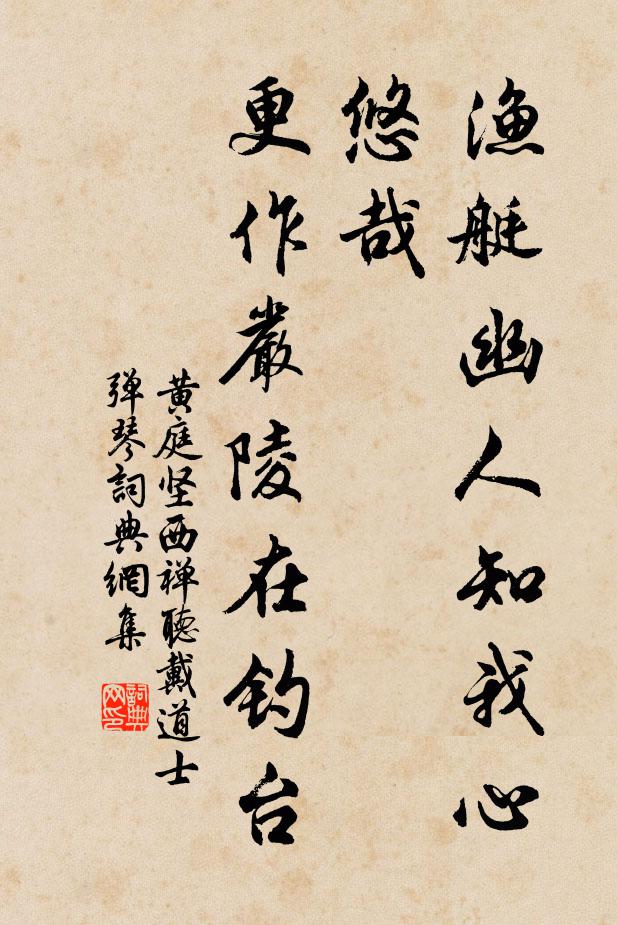 渔艇幽人知我心
悠哉
更作嚴陵在钓台
黄庭坚西禅聽戴道士
弹琴詞典網集
詞典网印